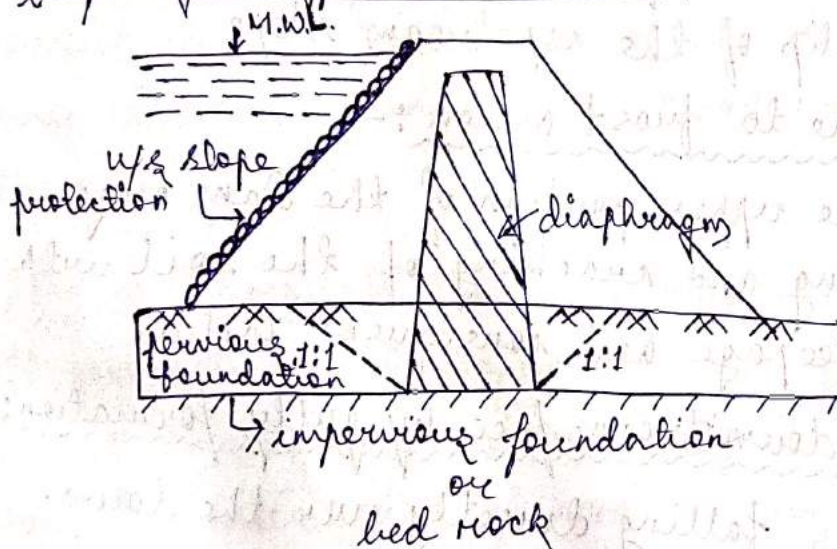 M.W.L.
u/s slope
protection
diaphragm
pervious
foundation
1:1
1:1
impervious foundation
or
bed rock